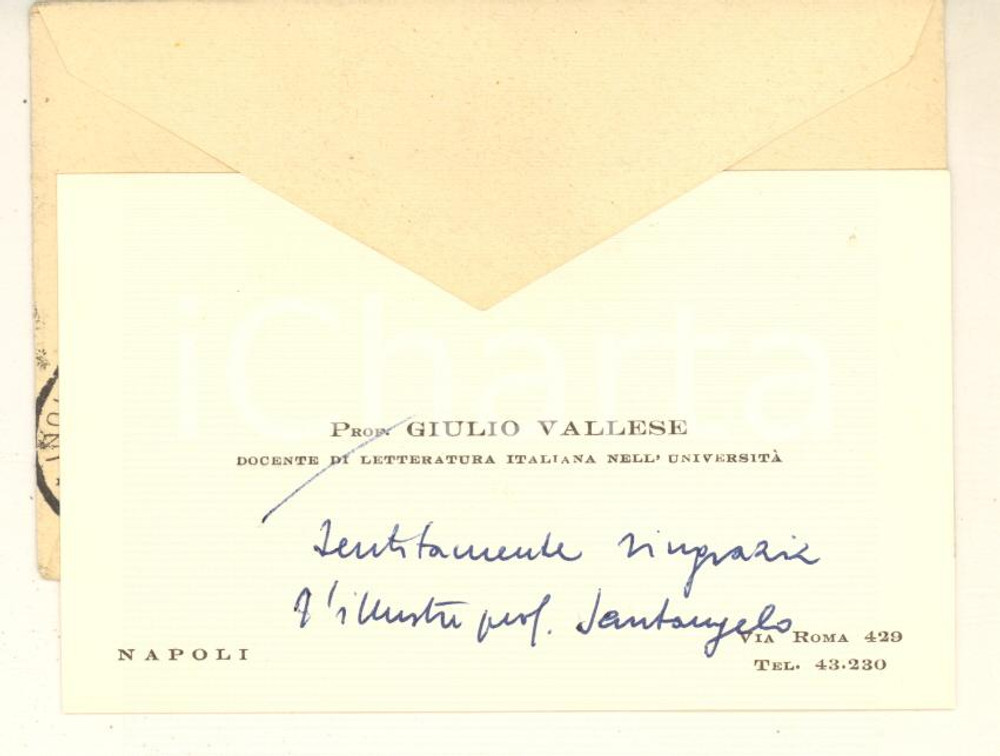 iCharta
Prof. GIULIO VALLESE
DOCENTE DI LETTERATURA ITALIANA NELL' UNIVERSITÀ
Sentitamente ringrazia
l'illustre prof. Santangelo
VIA ROMA 429
NAPOLI
TEL. 43.230